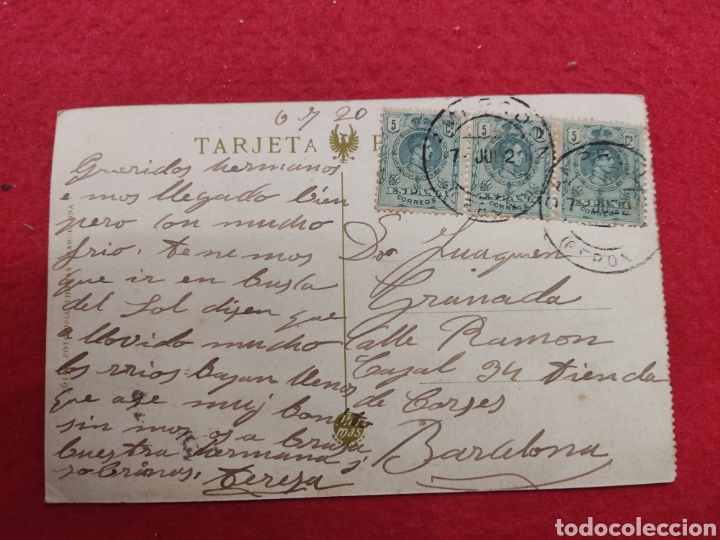 6 7 20
TARJETA
Queridos hermanos
e mos llegado bien
pero con mucho
frio. tenemos
que ir en busca
del Sol disen que
a llovido mucho
los rrios bajan llenos
que ase muy bonito
sin mas os a braza
buestra hermana y
sobrinos. Tereza
5 Cs
5 Cs
5
CORREOS
CORREOS
CORREOS
7 JUL 2
GERONA
Don Juaquen
Granada
Calle Ramon
Cajal 34 tienda
de Corses
Barcelona
Thomas
BARCELONA
todocoleccion